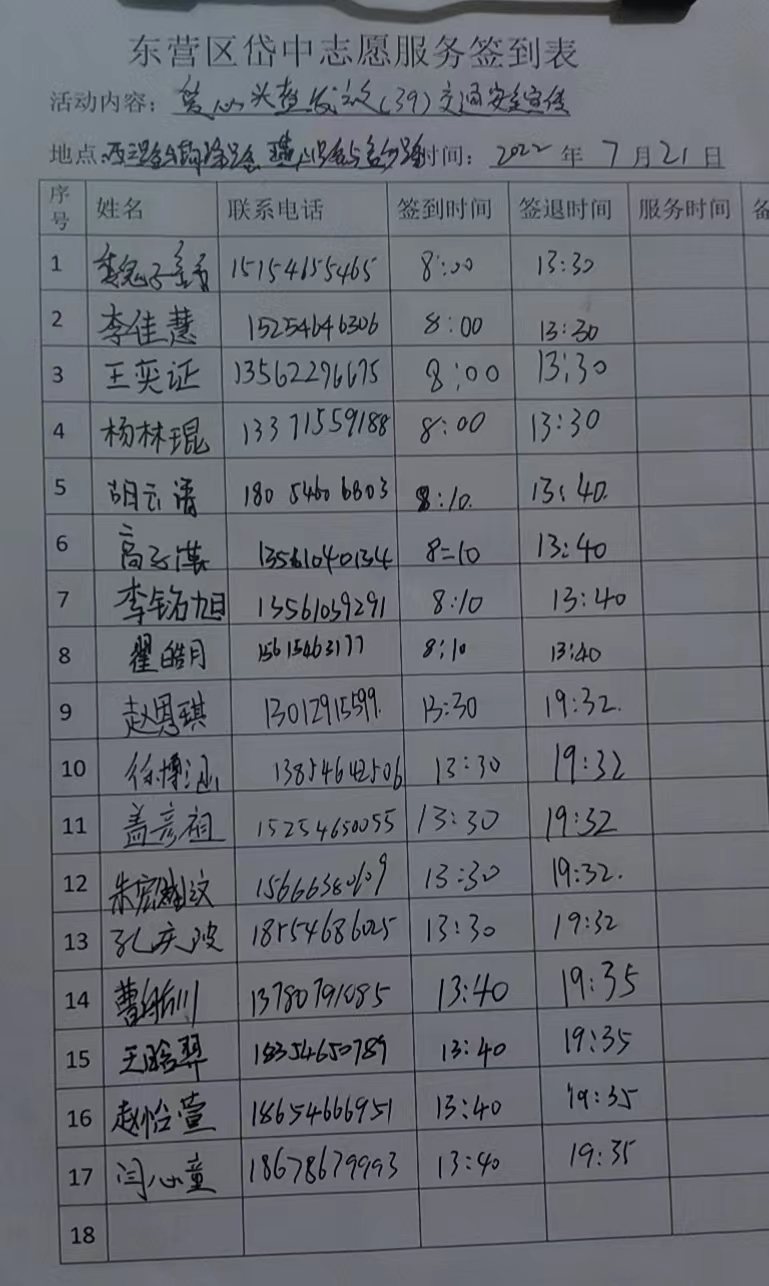 东营区岱中志愿服务签到表
活动内容: (39)交通安全宣传
地点: 时间: 2022 年 7 月 21 日
序号 姓名 联系电话 签到时间 签退时间 服务时间 备
1 15154655465 8:00 13:30
2 李佳慧 15254646306 8:00 13:30
3 王奕证 13562296675 8:00 13:30
4 杨林琨 13371559188 8:00 13:30
5 胡云清 180 5460 6803 8:10. 13:40.
6 13561040134 8=10 13:40
7 李铭旭 13561039291 8:10 13:40
8 翟皓月 15615463177 8:10 13:40
9 赵恩琪 13012915599. 13:30 19:32.
10 徐博涵 13854642506 13:30 19:32
11 盖彦祖 15254650055 13:30 19:32
12 15666380609 13:30 19:32.
13 孔庆波 18554686025 13:30 19:32
14 13780791085 13:40 19:35
15 王晗羿 18354650789 13:40 19:35
16 赵怡萱 18654666951 13:40 19:35
17 闫心童 18678679993 13:40 19:35
18